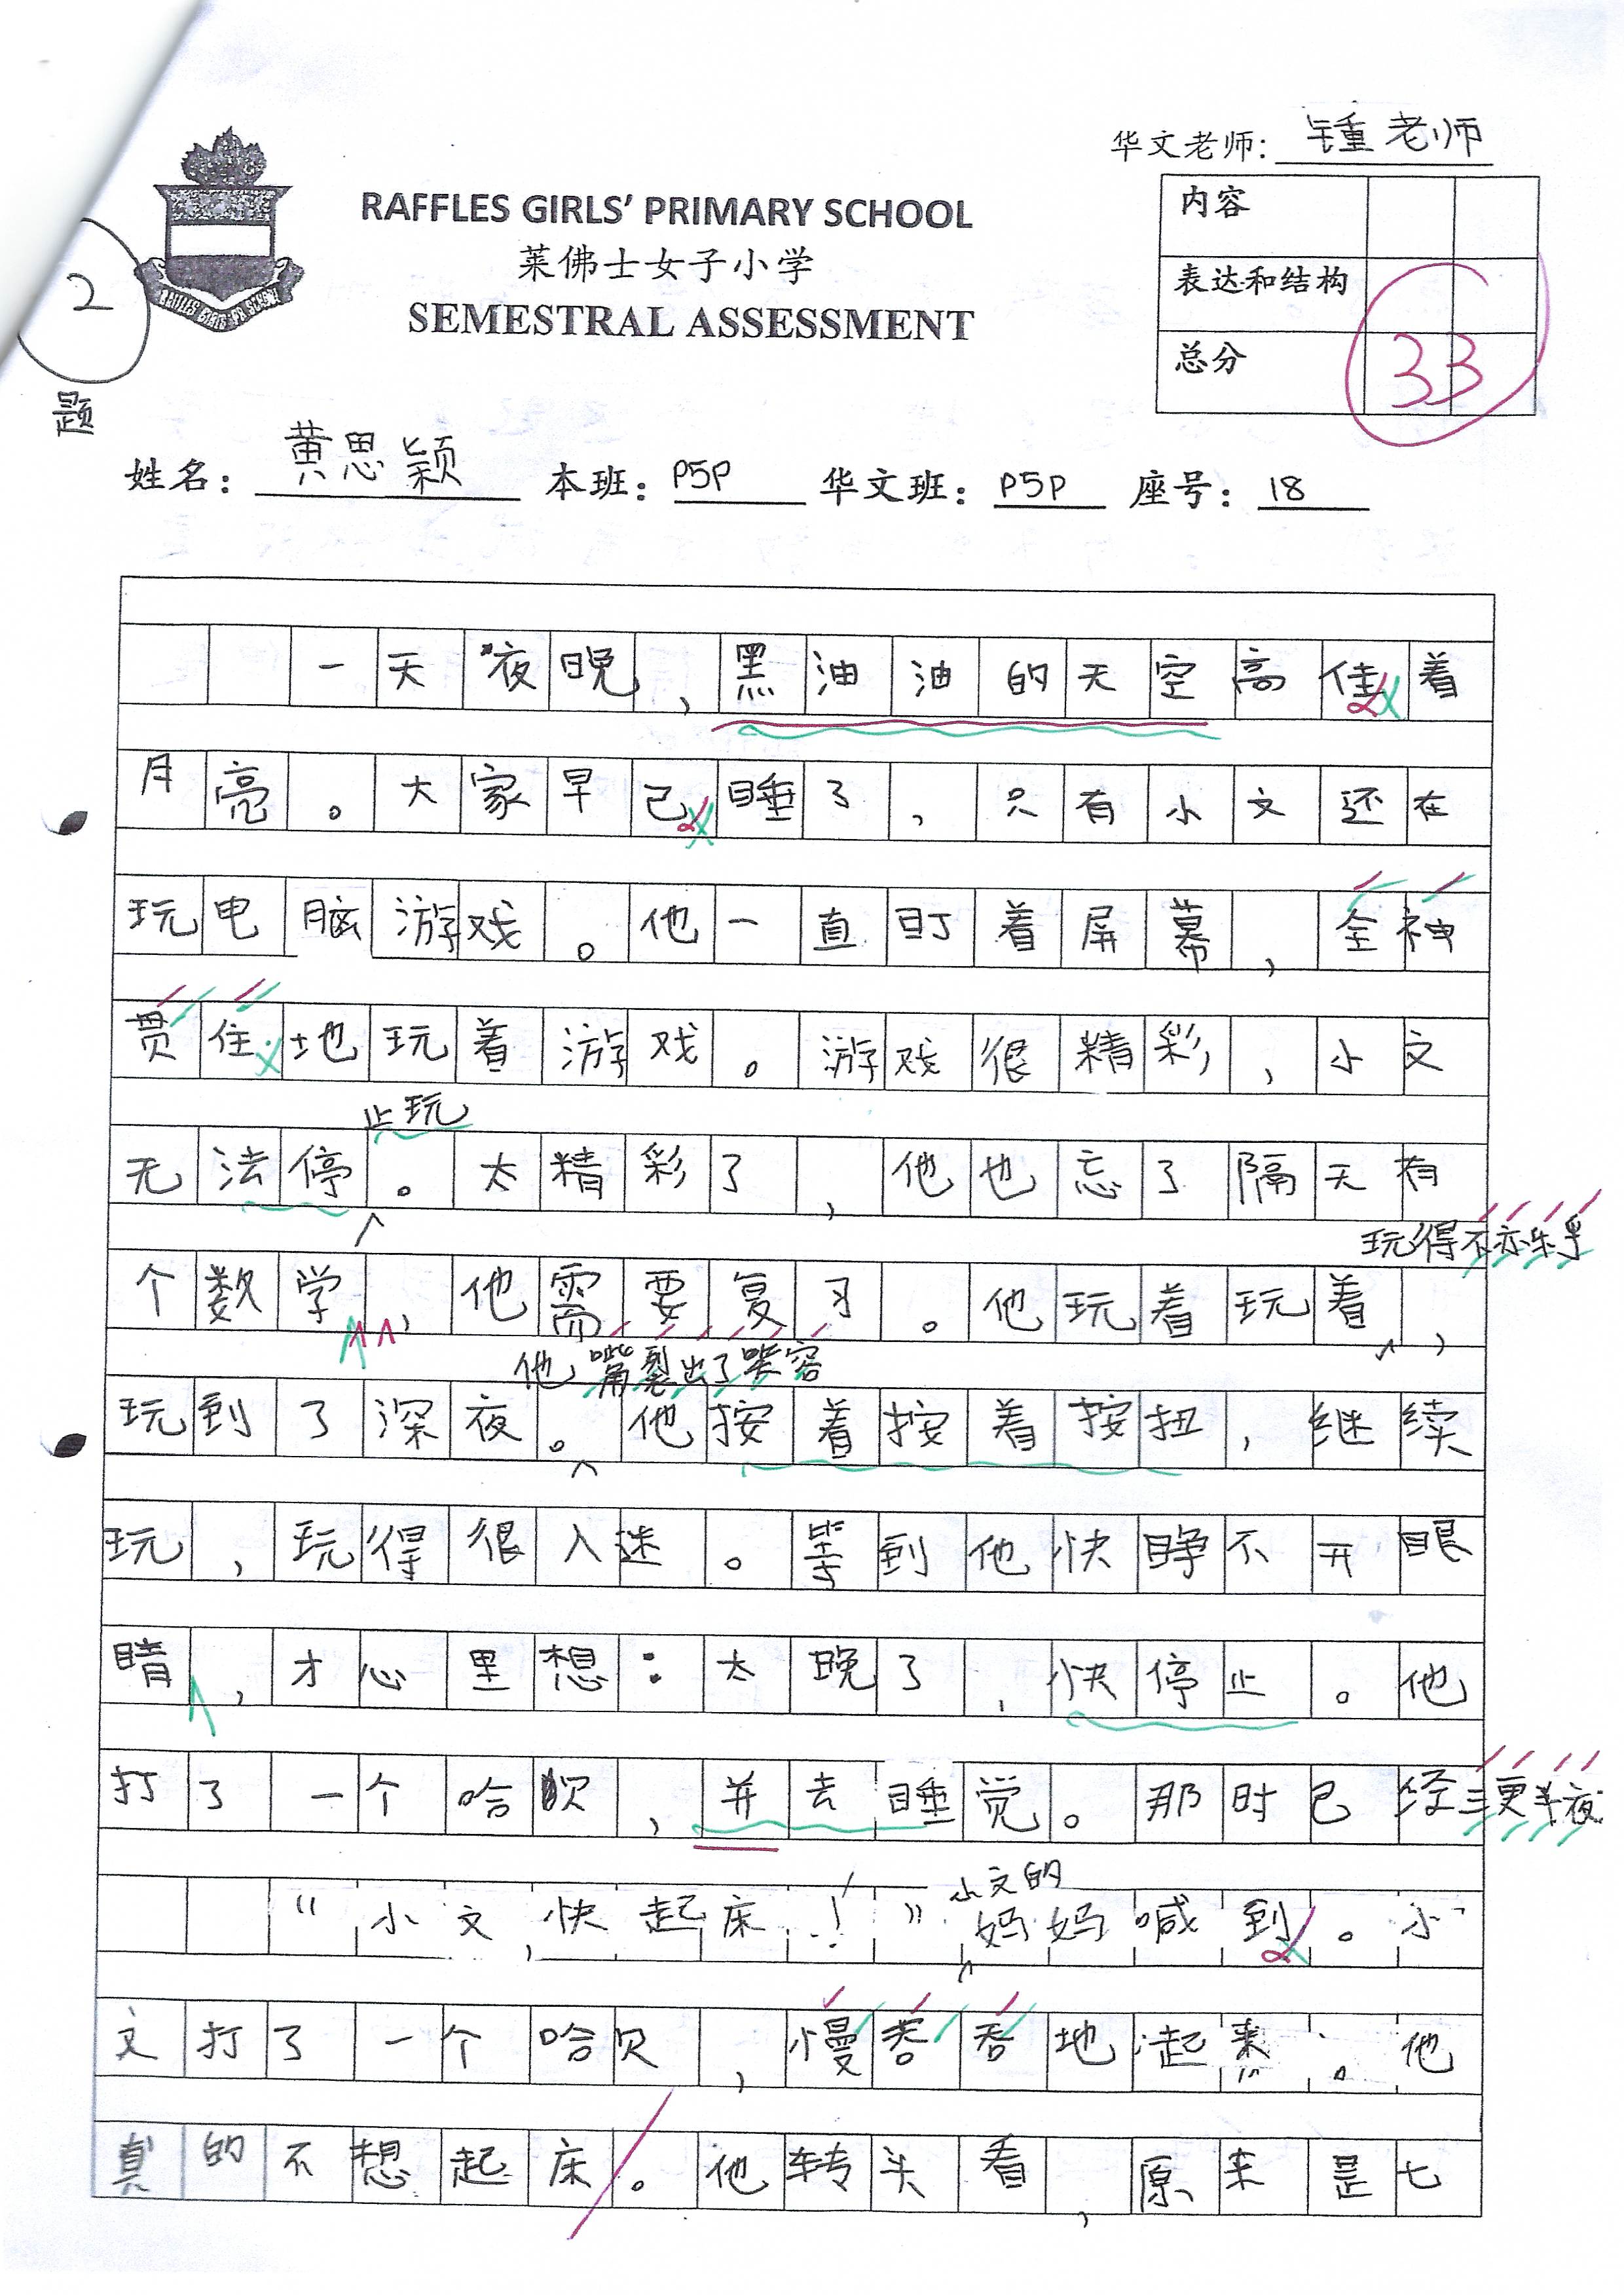 华文老师: 锺老师
RAFFLES GIRLS' PRIMARY SCHOOL
莱佛士女子小学
SEMESTRAL ASSESSMENT
内容
表达和结构
总分
33
2
题
姓名: 黄思颖 本班: P5P 华文班: P5P 座号: 18
一天夜晚，黑油油的天空高佳着
月亮。大家早己睡了，只有小文还在
玩电脑游戏。他一直盯着屏幕，全神
贯住地玩着游戏。游戏很精彩，小文
止玩
无法停。太精彩了，他也忘了隔天有
玩得不亦乐乎
个数学，他需要复习。他玩着玩着，
他嘴角裂出了笑容
玩到了深夜。他按着按着按扭，继续
玩，玩得很入迷。等到他快睁不开眼
睛，才心里想：太晚了，快停止。他
打了一个哈欠，并去睡觉。那时已经三更半夜
小文的
“小文，快起床！”妈妈喊到。小
文打了一个哈欠，慢吞吞地起来。他
真的不想起床。他转头看，原来是七